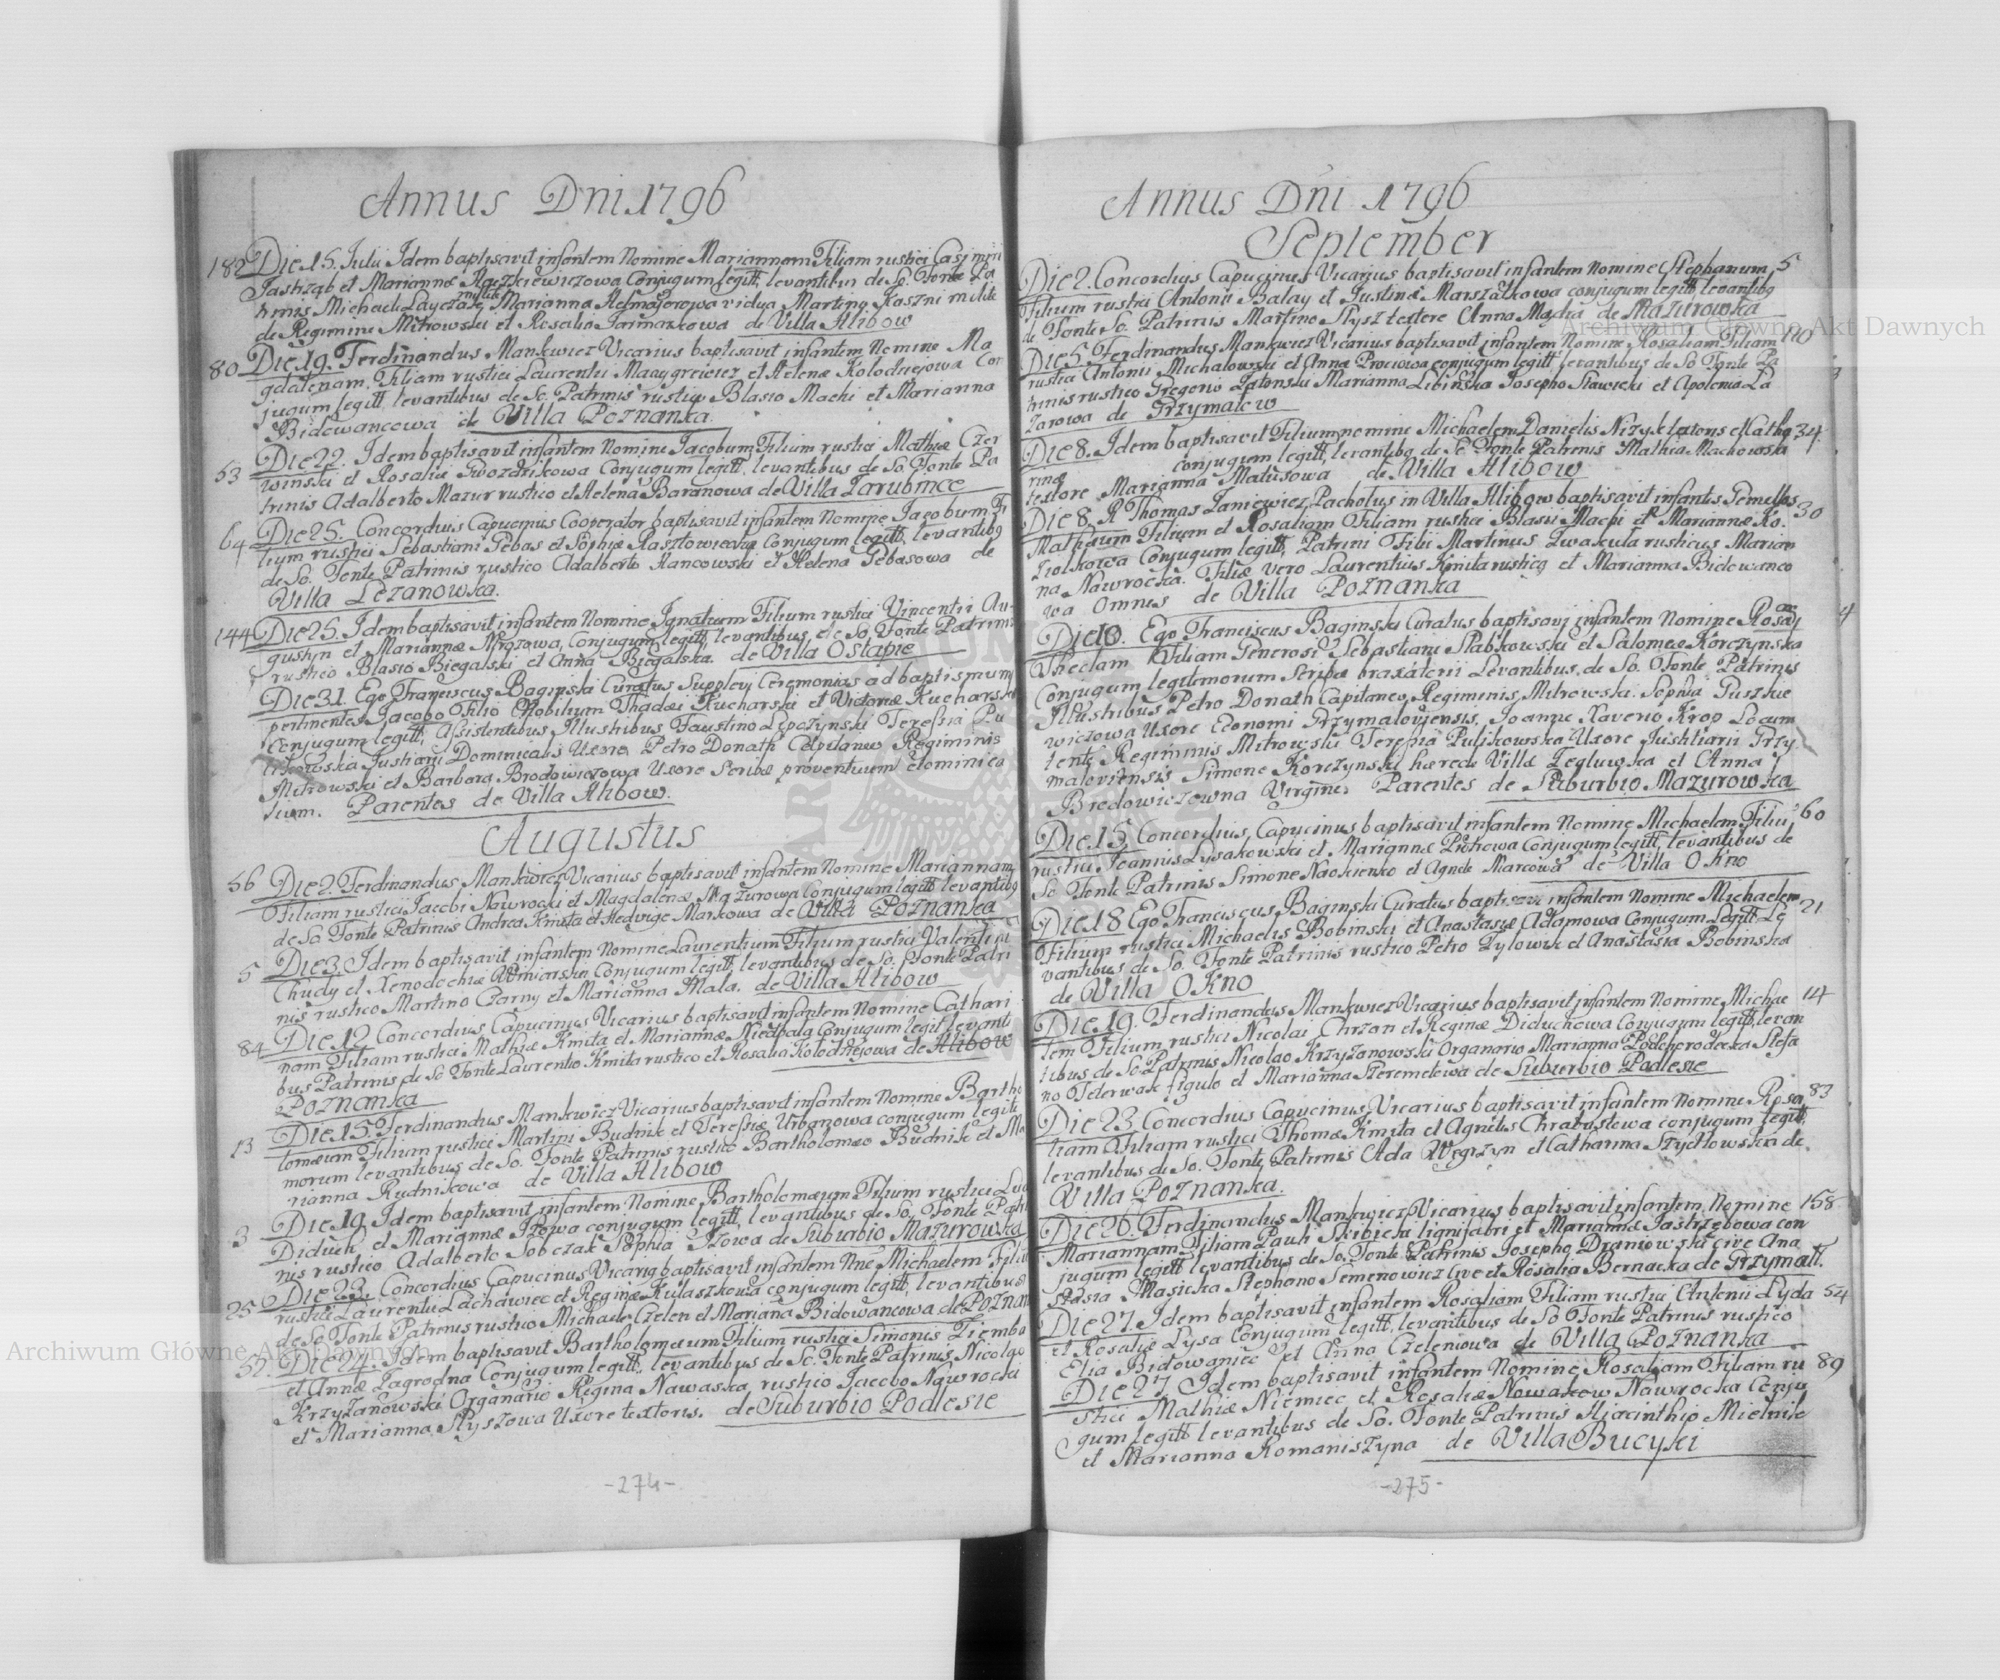 Annus Dni 1796
182 Die 15. Julii Idem baptisavit infantem Nomine Mariannam Filiam rustici Casimiri
Jastrząb et Mariannæ Raczkiewiczowa Conjugum legitt. levantibus de So. Fonte Pa
trinis Michaele Layczak milite Marianna vidua Martino Kaszni milite
de Regimine Mitrowski et Rosalia Jarmaskowa de Villa Hlibow
80 Die 19. Ferdinandus Mankwicz Vicarius baptisavit infantem Nomine Ma
gdalenam Filiam rustici Laurentii et Helenæ Kolodziejowa Con
jugum legitt. levantibus de So. Patrinis rustico Blasio Machi et Marianna
Bidowancowa de Villa Poznanka.
53 Die 22. Idem baptisavit infantem Nomine Jacobum Filium rustici Mathiæ Czer
winski et Rosaliæ Gwozdzikowa Conjugum legitt. levantibus de So. Fonte Pa
trinis Adalberto Mazur rustico et Helena Baranowa de Villa Zarubince
64 Die 25. Concordius Capucinus Cooperator baptisavit infantem Nomine Jacobum Fi
lium rustici Sebastiani Gebas et Sophiæ Raszlowiecka Conjugum legitt. levantibq
de So. Fonte Patrinis rustico Adalberto Hancowski et Helena Gebasowa de
Villa Lezanowka.
144 Die 25. Idem baptisavit infantem Nomine Ignatium Filium rustici Vincentii Au-
gustyn et Mariannæ Mrozowa, Conjugum legitt. levantibus de So. Fonte Patrinis
rustico Blasio Biegalski et Anna Biegalska. de Villa Ostapie
Die 31. Ego Franciscus Baginski Curatus Supplevi Ceremonias ad baptismum
pertinentes Jacobo Filio Nobilium Thadæi Kucharski et Victoriæ Kucharska
Conjugum legitt. Assistentibus Illustribus Faustino Lepczynski Teressia Pu
likowska Justiarii Dominicalis Uxore Petro Donath Capitaneo Regiminis
Mitrowski et Barbara Brodowiczowa Uxore Scribæ proventuum dominica
lium. Parentes de Villa Hlibow.
Augustus
56 Die 2. Ferdinandus Mankwicz Vicarius baptisavit infantem Nomine Mariannam
Filiam rustici Jacobi Nawrocki et Magdalenæ Mazurowa Conjugum legitt levantibq
de So Fonte Patrinis Andrea Kmita et Hedvige Markowa de Villa Poznanka
5 Die 3. Idem baptisavit infantem Nomine Laurentium Filium rustici Valentini
Chudy et Xenodochiæ Conjugum legitt. levantibus de So. Fonte Patri
nis rustico Martino Czarny et Marianna Mala. de Villa Hlibow
84 Die 12 Concordius Capucinus Vicarius baptisavit infantem Nomine Cathari
nam Filiam rustici Mathiæ Kmita et Mariannæ Niedbala Conjugum legit levanti
bus Patrinis de So Fonte Laurentio Kmita rustico et Rosalia Kolodziejowa de Hlibow
Poznanka
13 Die 15. Ferdinandus Mankwicz Vicarius baptisavit infantem Nomine Bartho
lomæum Filium rustici Martini Budnik et Teressiæ Urbanowa conjugum legiti
morum levantibus de So. Fonte Patrinis rustico Bartholomæo Budnik et Ma
rianna Rudnikowa de Villa Hlibow
3 Die 19. Idem baptisavit infantem Nomine Bartholomæum Filium rustici Luc
Diduch et Mariannæ Izowa conjugum legitt. levantibus de So. Fonte Patri
nis rustico Adalberto Sobczak Sophia Izowa de Suburbio Mazurowka
25 Die 23. Concordius Capucinus Vicariq baptisavit infantem Nne Michaelem Filiu
rustici Laurentii Lachawiec et Reginæ Kulaszkowa conjugum legitt. levantibus
de So Fonte Patrinis rustico Michaele Czelen et Mariana Bidowancowa de Poznan
52. Die 24. Idem baptisavit Bartholomæum Filium rustici Simonis Ziemba
et Annæ Zagrodna Conjugum legitt. levantibus de So. Fonte Patrinis Nicolao
Krzyżanowski Organario Regina Nawaska rustico Jacobo Nawrocki
et Marianna Slyszowa Uxore textoris. de Suburbio Podlesie
-274-
Annus Dni 1796
September
Die 2. Concordius Capucinus Vicarius baptisavit infantem Nomine Stephanum 5
Filium rustici Antonii Balay et Justinæ Marszalkowa conjugum legitt. levantibq
de Fonte So. Patrinis Martino Slysz textore Anna Maydia de Mazurowka
Die 5. Ferdinandus Mankwicz Vicarius baptisavit infantem Nomine Rosaliam Filiam 110
rustici Antonii Michalowski et Annæ Prociowa conjugum legitt levantibus de So Fonte Pa
trinis rustico Gregorio Zatonski Marianna Libinska Josepho Slawicki et Apolonia La
zarowa de Grzymalow
Die 8. Idem baptisavit Filium nomine Michaelem Danielis Nizyk latoris et Catha 34
rinæ conjugum legitt. levantibq de So Fonte Patrinis Mathia Machowski
textore Marianna Matusowa de Villa Hlibow
Die 8. R Thomas Janiewicz Parochus in Villa Hlibow baptisavit infantes Gemellos 30
Mathæum Filium et Rosaliam Filiam rustici Blasii Machi et Mariannæ Ko
ziolkowa Conjugum legitt. Patrini Filii Martinus Kwakula rusticus Marian
na Nawrocka. Filiæ vero Laurentius Kmita rusticq et Marianna Bidowanco
wa Omnes de Villa Poznanka
Die 10. Ego Franciscus Baginski Curatus baptisavi infantem Nomine Rosaj 4
Theclam Filiam Generosi Sebastiani Slabkowski et Salomeæ Korczynska
Conjugum legitimorum Scribæ braxatorii Levantibus de So. Fonte Patrinis
Illustribus Petro Donath Capitaneo Regiminis Mitrowski. Sophia Puszkie
wiczowa Uxore Economi Grzymaloviensis. Joanne Xaverio Krop Locum
tente Regiminis Mitrowski Teressia Pulikowska Uxore Justitiarii Grzy
maloviensis Simone Korczynski hærede Villæ Zegluwka et Anna
Bredowiczowna Virgine. Parentes de Suburbio Mazurowka
Die 15. Concordius Capucinus baptisavit infantem Nomine Michaelem Filiu 60
rustici Joannis Lysakowski et Mariannæ Piotrowa Conjugum legitt. levantibus de
So Fonte Patrinis Simone Naokienko et Agnete Marcowa de Villa Okno
Die 18 Ego Franciscus Baginski Curatus baptisavi infantem Nomine Michaelem 21
Filium rustici Michaelis Bobinski et Anastasiæ Adamowa Conjugum Legitt. Le
vantibus de So. Fonte Patrinis rustico Petro Tylowik et Anastasia Bobinska
de Villa Okno
Die 19. Ferdinandus Mankwicz Vicarius baptisavit infantem Nomine Michae 14
lem Filium rustici Nicolai Chrzan et Reginæ Diduchowa Conjugum legitt. levan
tibus de So. Patrinis Nicolao Krzyzonowski Organario Marianna Podchorodecka Stefa
no Federwak figulo et Marianna Szeremetowa de Suburbio Podlesie
Die 23. Concordius Capucinus Vicarius baptisavit infantem Nomine Rosa 83
liam Filiam rustici Thomæ Kmita et Agnetis Chrabąslowa conjugum legitt.
levantibus de So. Fonte Patrinis Ada Węgrzyn et Catharina Szydlowska de
Villa Poznanka.
Die 26. Ferdinandus Mankwicz Vicarius baptisavit infantem Nomine 158
Mariannam Filiam Pauli Skibicki lignifabri et Mariannæ Jastrzębowa con
jugum legitt levantibus de So. Fonte Patrinis Josepho Draniowski cive Ana
stasia Masicka Stephano Semenowicz Cive et Rosalia Bernacka de Grzymall.
Die 27. Idem baptisavit infantem Rosaliam Filiam rustici Antonii Lyda 54
et Rosaliæ Lysa Conjugum legitt. levantibus de So Fonte Patrinis rustico
Elia Bidowaniec et Anna Czeleniowa de Villa Poznanka
Die 27 Idem baptisavit infantem Nomine Rosaliam Filiam ru 89
stici Mathiæ Niemiec et Rosaliæ Nowakow Nawrocka Conju
gum legitt levantibus de So. Fonte Patrinis Hiacinthio Mielnik
et Marianna Romaniszyna de Villa Bucyki
-275-
Archiwum Główne Akt Dawnych
Archiwum Główne Akt Dawnych